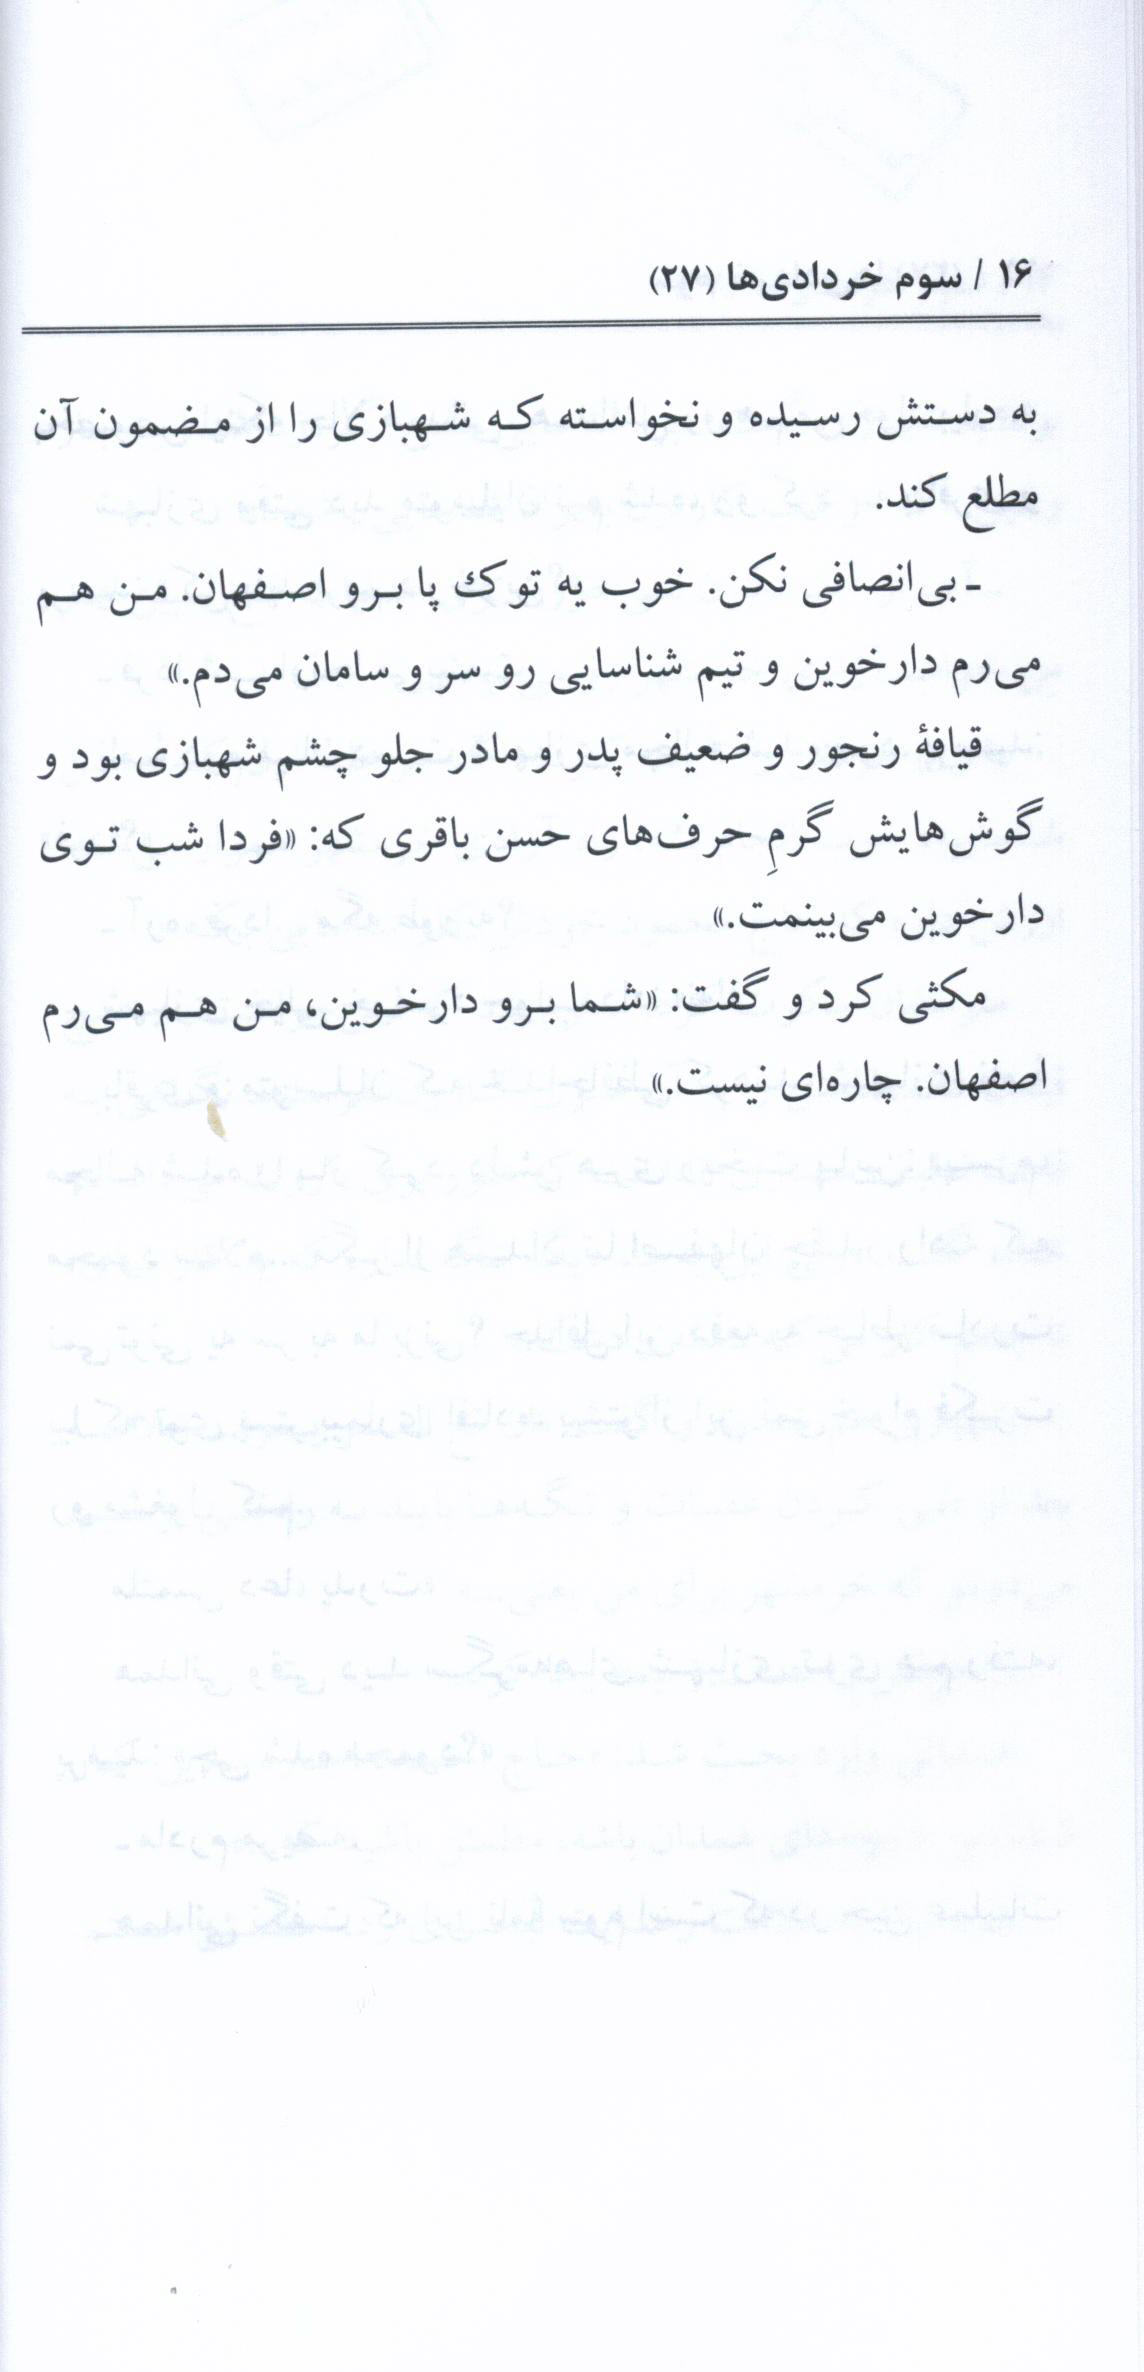 ۱۶ / سوم خردادی‌ها (۲۷)
به دستش رسیده و نخواسته که شهبازی را از مضمون آن
مطلع کند.
ـ بی‌انصافی نکن. خوب یه توک پا برو اصفهان. من هم
می‌رم دارخوین و تیم شناسایی رو سر و سامان می‌دم.»
قیافهٔ رنجور و ضعیف پدر و مادر جلو چشم شهبازی بود و
گوش‌هایش گرمِ حرف‌های حسن باقری که: «فردا شب توی
دارخوین می‌بینمت.»
مکثی کرد و گفت: «شما برو دارخوین، من هم می‌رم
اصفهان. چاره‌ای نیست.»